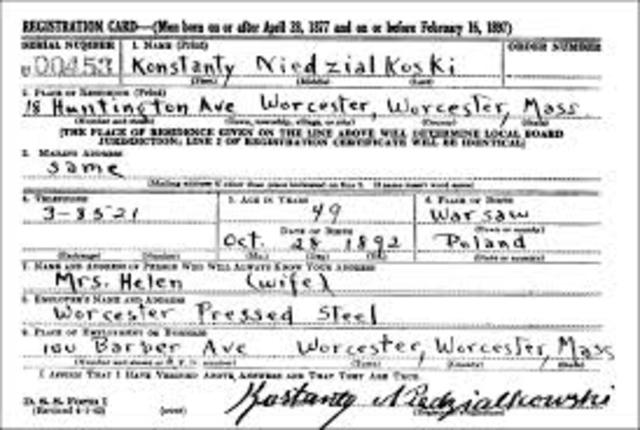 REGISTRATION CARD—(Men born on or after April 28, 1877 and on or before February 16, 1897)
SERIAL NUMBER 1. NAME (Print) ORDER NUMBER
U00453 Konstanty Niedzialkoski
(First) (Middle) (Last)
2. PLACE OF RESIDENCE (Print)
18 Huntington Ave Worcester, Worcester, Mass
(Number and street) (Town, township, village, or city) (County) (State)
[THE PLACE OF RESIDENCE GIVEN ON THE LINE ABOVE WILL DETERMINE LOCAL BOARD
JURISDICTION; LINE 2 OF REGISTRATION CERTIFICATE WILL BE IDENTICAL]
3. MAILING ADDRESS
same
[Mailing address if other than place indicated on line 2. If same insert word same]
4. TELEPHONE 5. AGE IN YEARS 6. PLACE OF BIRTH
3-8521 49 Warsaw
DATE OF BIRTH (Town or county)
Oct. 28 1892 Poland
(Exchange) (Number) (Mo.) (Day) (Yr.) (State or country)
7. NAME AND ADDRESS OF PERSON WHO WILL ALWAYS KNOW YOUR ADDRESS
Mrs. Helen (wife)
8. EMPLOYER'S NAME AND ADDRESS
Worcester Pressed Steel
9. PLACE OF EMPLOYMENT OR BUSINESS
100 Barber Ave Worcester, Worcester, Mass
(Number and street or R. F. D. number) (Town) (County) (State)
I AFFIRM THAT I HAVE VERIFIED ABOVE ANSWERS AND THAT THEY ARE TRUE.
D. S. S. Form 1
(Revised 4-1-42) (over) Kostanty Niedzialkowski